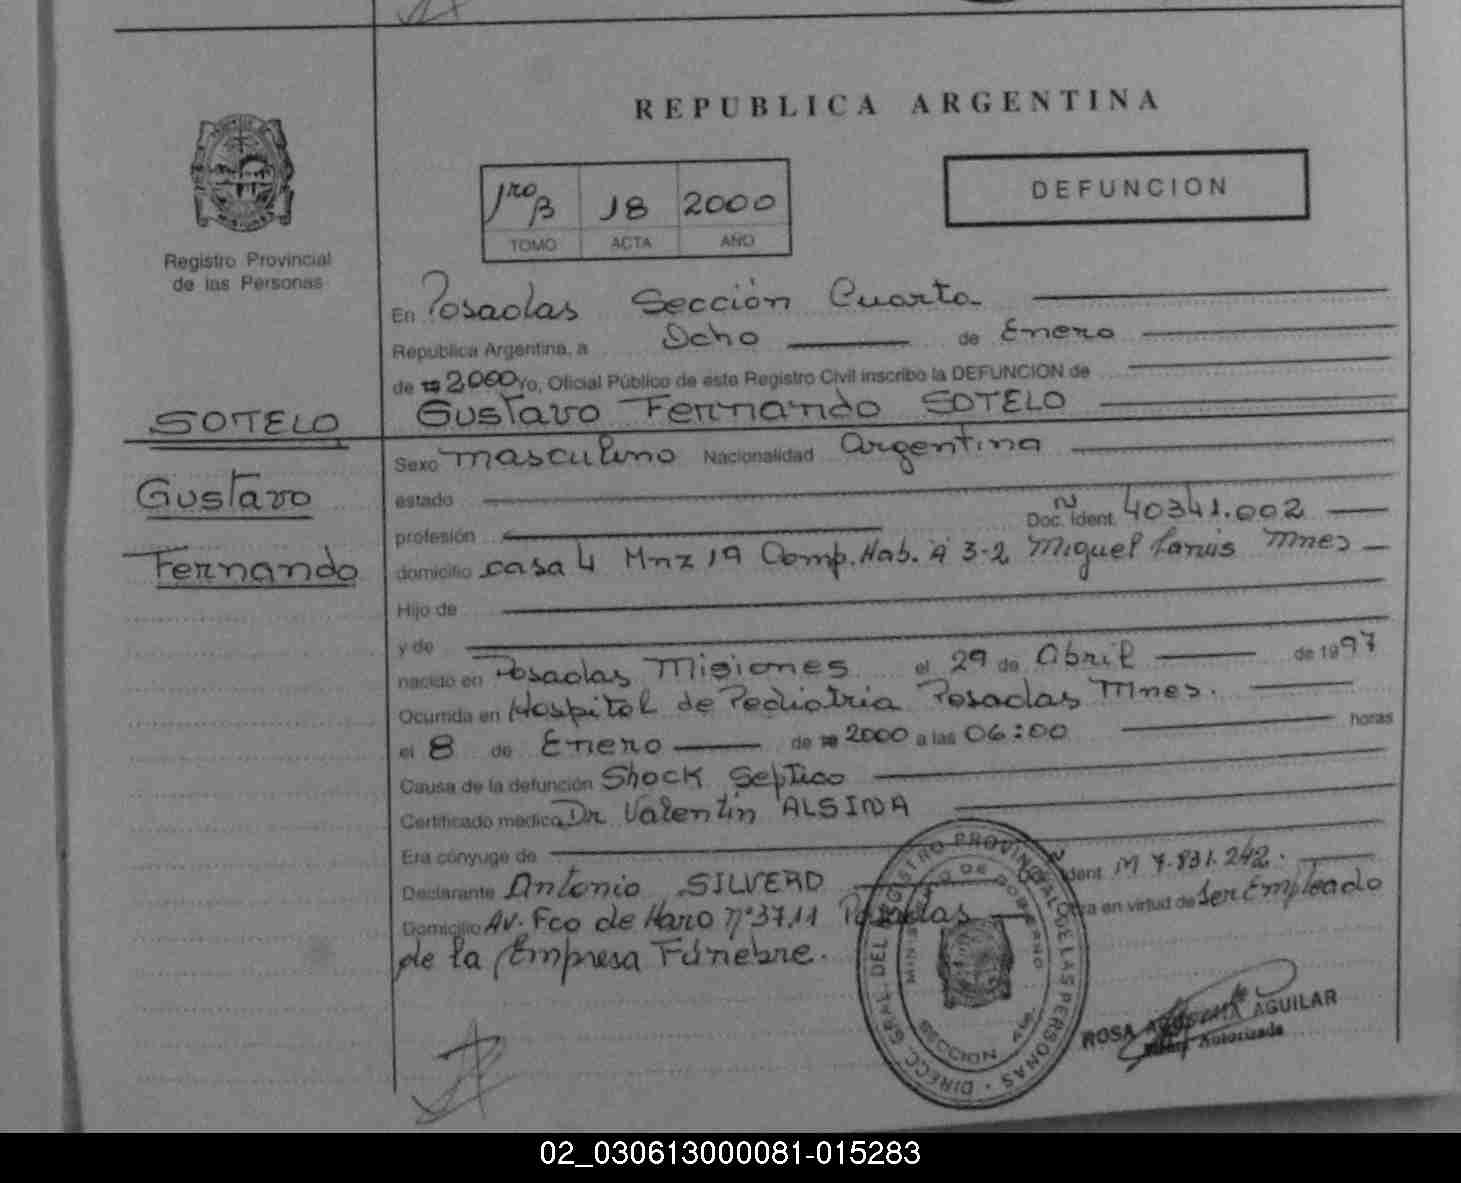 REPUBLICA ARGENTINA
1ro B 18 2000
TOMO ACTA AÑO
DEFUNCION
Registro Provincial
de las Personas
En Posadas Sección Cuarta
República Argentina, a Ocho de Enero
de 2000 Yo, Oficial Público de este Registro Civil inscribo la DEFUNCION de
Gustavo Fernando SOTELO
SOTELO
Gustavo
Fernando
Sexo masculino Nacionalidad Argentina
estado
profesión Doc. Ident. N 40341.002
domicilio casa 4 Mnz 19 Comp. Hab. A 3-2 Miguel Lanús Mnes
Hijo de
y de
nacido en Posadas Misiones el 29 de Abril de 1997
Ocurrida en Hospital de Pediatria Posadas Mnes.
el 8 de Enero de 2000 a las 06:00 horas
Causa de la defunción Shock Septico
Certificado médico Dr Valentín ALSINA
Era cónyuge de
Declarante Antonio SILVERO Ident M 7.831.242.
Domicilio Av. Fco de Haro nº 3711 Posadas en virtud de Ser Empleado
de la Empresa Fúnebre.
DIRECC. GRAL. DEL REGISTRO PROVINCIAL DE LAS PERSONAS
MINISTERIO DE GOBIERNO
SECCION 4ta.
ROSA AGUILAR
Autorizada
02_030613000081-015283